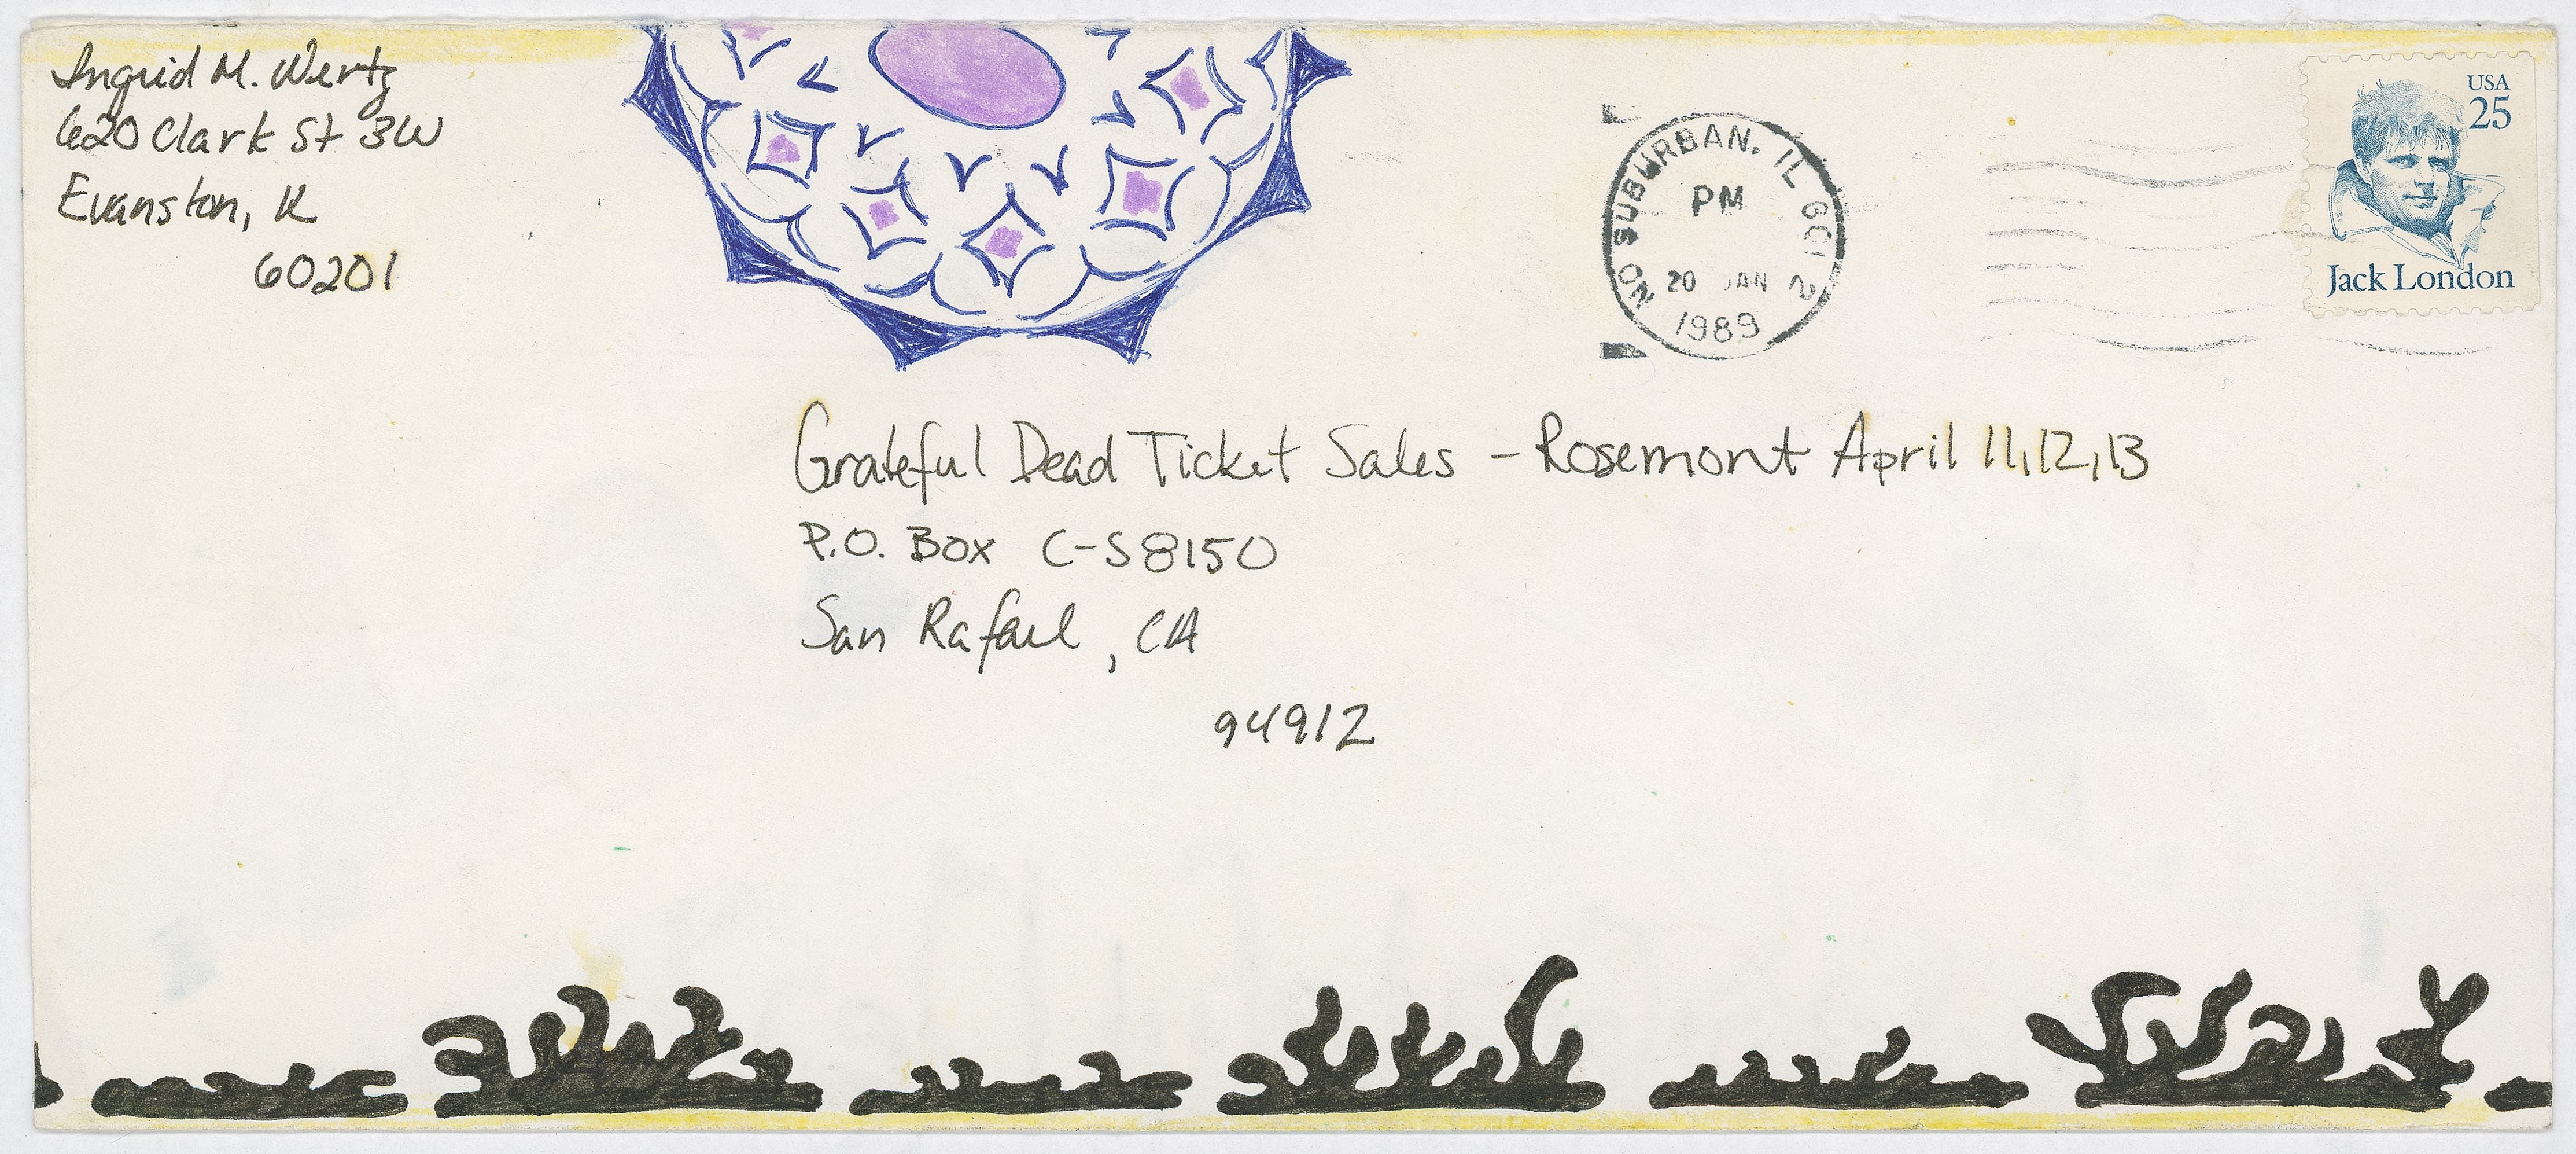 Ingrid M. Wertz
620 Clark St 3W
Evanston, IL
60201
NO SUBURBAN, IL GCI 2
PM
20 JAN
1989
USA
25
Jack London
Grateful Dead Ticket Sales - Rosemont April 11,12,13
P.O. Box C-S8150
San Rafael, CA
94912